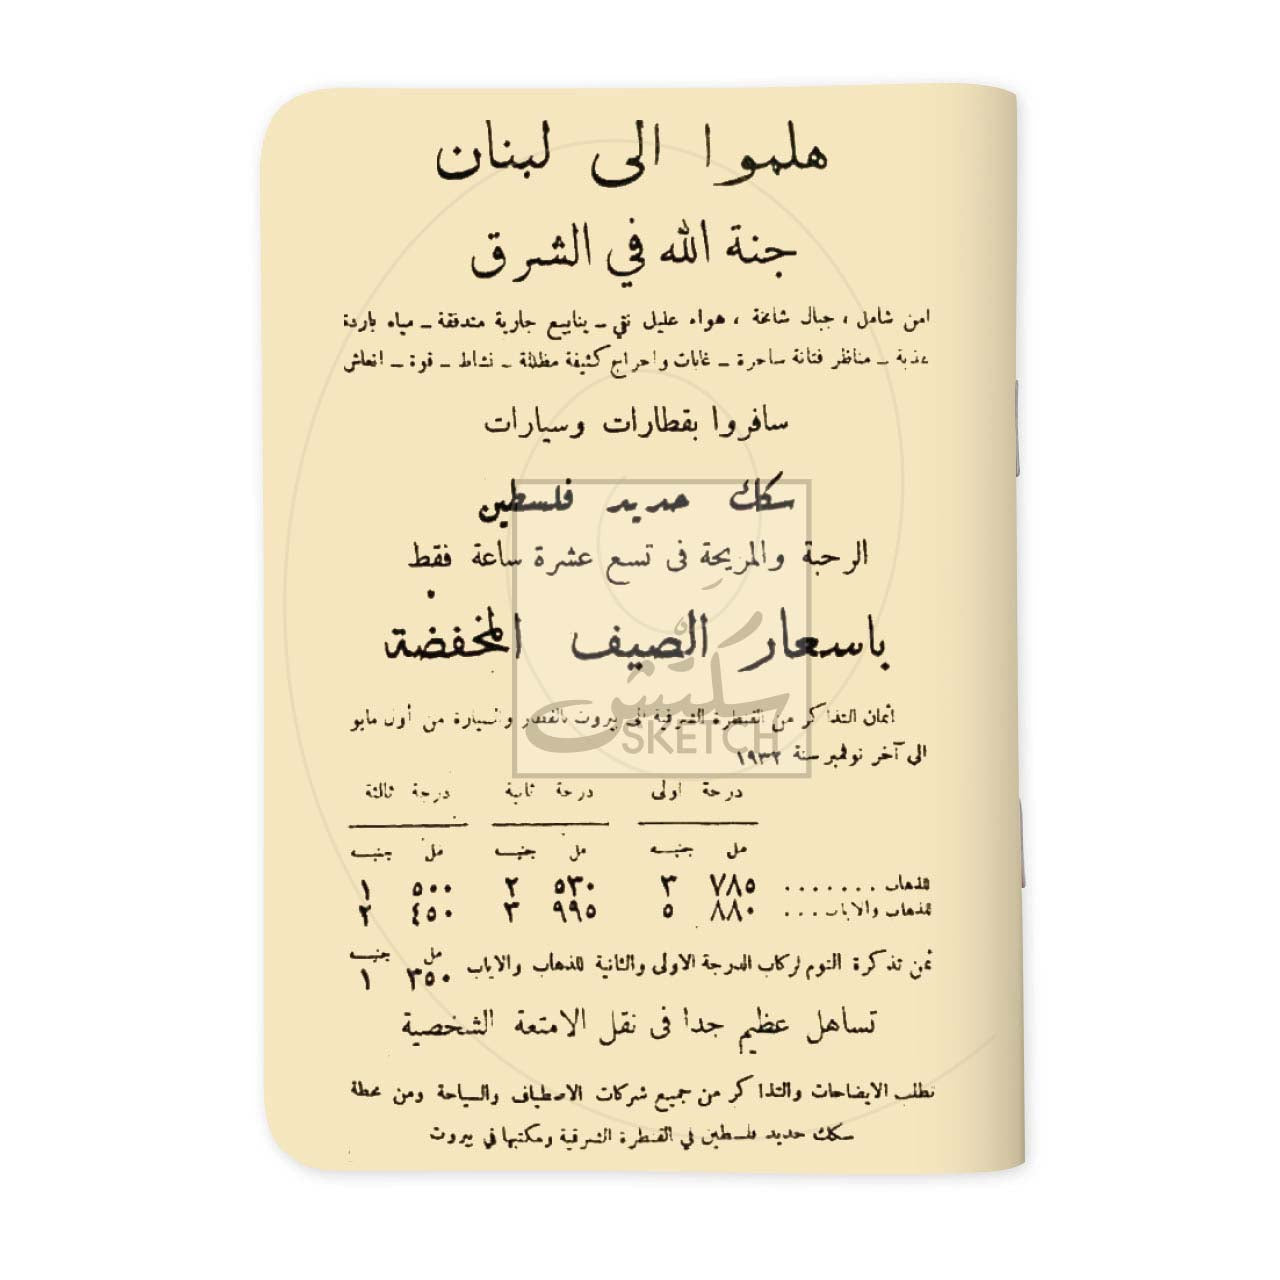 هلموا الى لبنان
جنة الله في الشرق
امن شامل ، جبال شامخة ، هواء عليل نقي ــ ينابيع جارية متدفقة ــ مياه باردة
عذبة ــ مناظر فتانة ساحرة ــ غابات واحراج كثيفة مظللة ــ نشاط ــ قوة ــ انعاش
سافروا بقطارات وسيارات
سكك حديد فلسطين
الرحبة والمريحة فى تسع عشرة ساعة فقط
باسعار الصيف المخفضة
أثمان التذاكر من القنطرة الشرقية الى بيروت بالقطار والسيارة من أول مايو
الى آخر نوفمبر سنة ١٩٣٢
درجة اولى درجة ثانية درجة ثالثة
مل جنيـه مل جنيـه مل جنيـه
للذهاب . . . . . . . ٧٨٥ ٣ ٥٣٠ ٢ ٥٠٠ ١
للذهاب والاياب . . . ٨٨٠ ٥ ٩٩٥ ٣ ٤٥٠ ٢
مل جنيـه
ثمن تذكرة النوم لركاب الدرجة الاولى والثانية للذهاب والاياب ٣٥٠ ١
تساهل عظيم جدا فى نقل الامتعة الشخصية
تطلب الايضاحات والتذاكر من جميع شركات الاصطياف والسياحة ومن محطة
سكك حديد فلسطين في القنطرة الشرقية ومكتبها في بيروت
سكتش
SKETCH